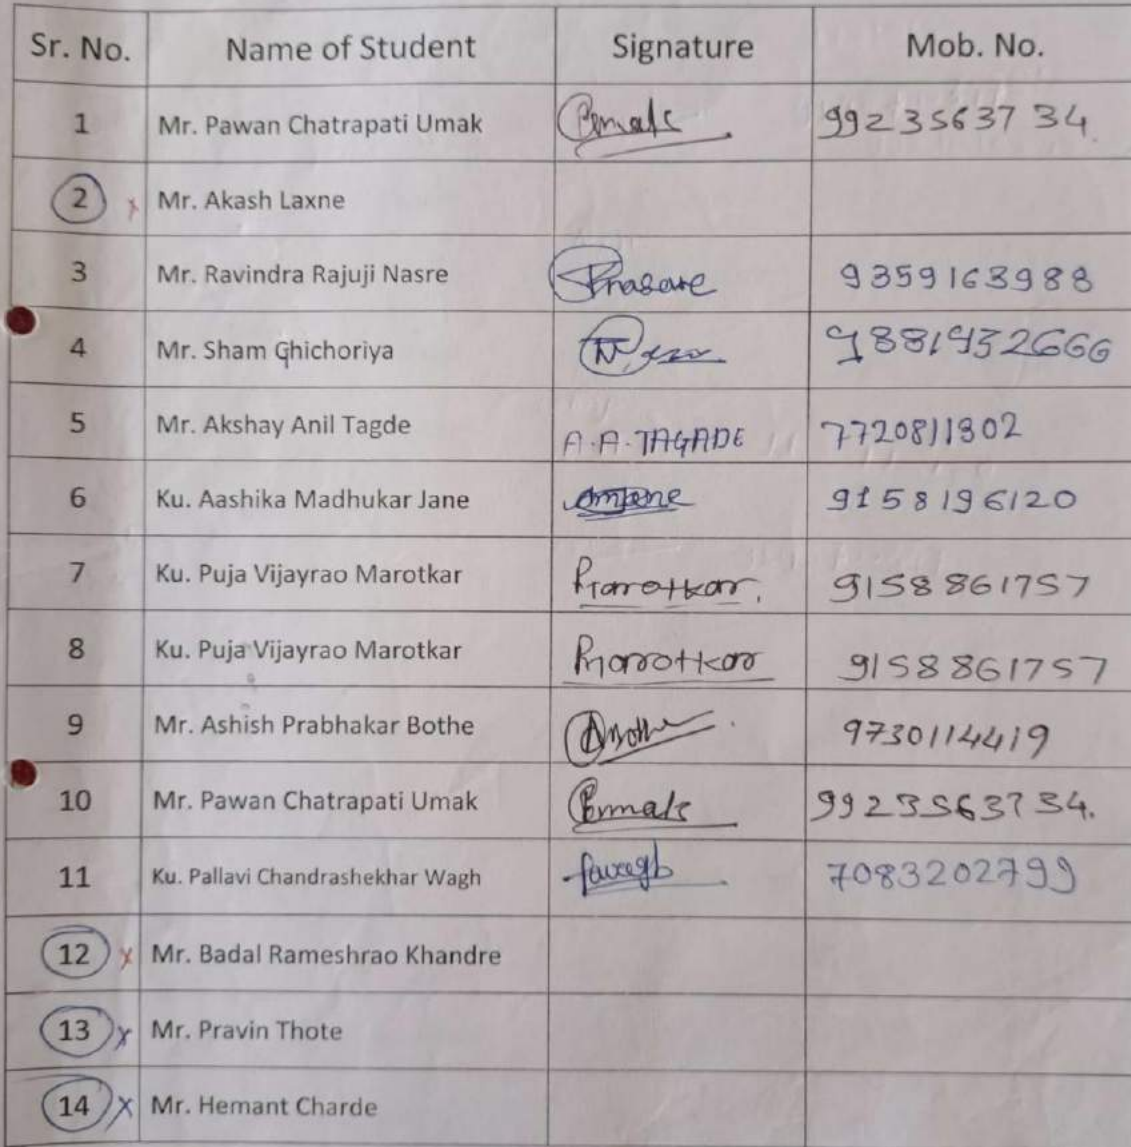 Sr. No. Name of Student Signature Mob. No.
1 Mr. Pawan Chatrapati Umak 9923563734.
2 x Mr. Akash Laxne
3 Mr. Ravindra Rajuji Nasre 9359163988
4 Mr. Sham Ghichoriya 9881932666
5 Mr. Akshay Anil Tagde A.A.TAGADE 7720811302
6 Ku. Aashika Madhukar Jane 9158196120
7 Ku. Puja Vijayrao Marotkar Pmarotkar. 9158861757
8 Ku. Puja Vijayrao Marotkar Pmarotkar 9158861757
9 Mr. Ashish Prabhakar Bothe 9730114419
10 Mr. Pawan Chatrapati Umak 9923563734.
11 Ku. Pallavi Chandrashekhar Wagh 7083202799
12 x Mr. Badal Rameshrao Khandre
13 x Mr. Pravin Thote
14 x Mr. Hemant Charde